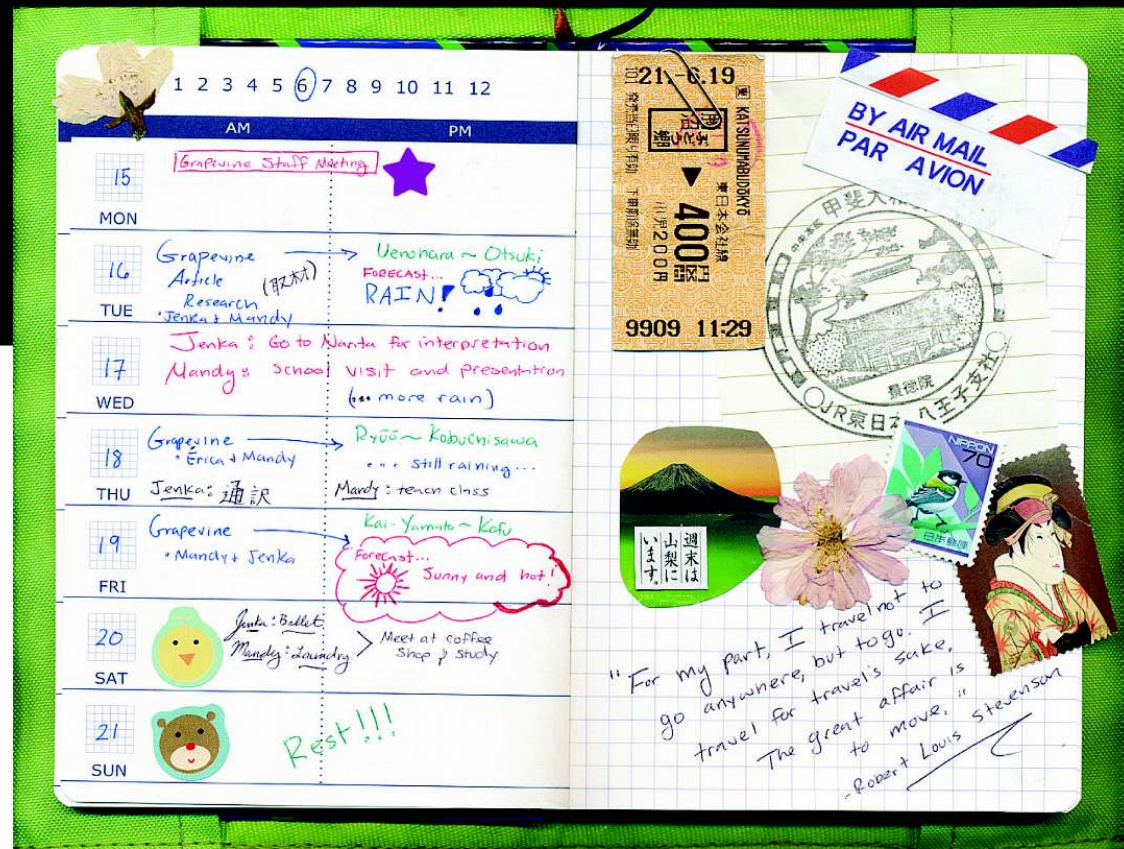 1 2 3 4 5 6 7 8 9 10 11 12
AM PM
15
MON
Grapevine Staff Meeting
16
TUE
Grapevine
Article
Research (取材)
・Jenka + Mandy
Uenohara ~ Otsuki
FORECAST...
RAIN!
17
WED
Jenka: Go to Nanta for interpretation
Mandy: School visit and presentation
(... more rain)
18
THU
Grapevine
・Erica + Mandy
Jenka: 通訳
Ryūō ~ Kobuchisawa
... still raining...
Mandy: teach class
19
FRI
Grapevine
・Mandy + Jenka
Kai-Yamato ~ Kofu
Forecast...
Sunny and hot!
20
SAT
Jenka: Ballet
Mandy: Laundry
Meet at coffee
Shop & study
21
SUN
Rest!!!
21.-6.19
KATSUNUMABUDŌKYŌ
東日本会社線
400円区間
小児200円
発売当日限り有効 下車前途無効
9909 11:29
BY AIR MAIL
PAR AVION
甲斐大和
景徳院
JR東日本 八王子支社
週末は
山梨に
います。
NIPPON
70
日本郵便
"For my part, I travel not to
go anywhere, but to go. I
travel for travel's sake.
The great affair is
to move."
-Robert Louis Stevenson